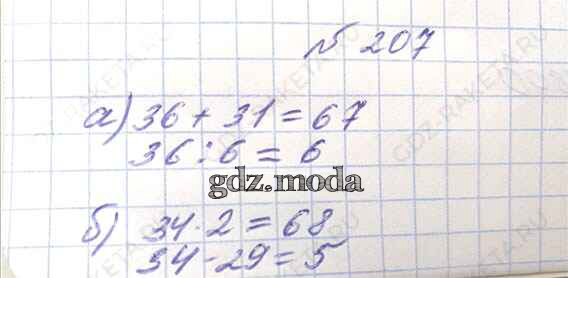 № 207
а) 36 + 31 = 67
36 : 6 = 6
gdz.moda
б) 34 · 2 = 68
34 - 29 = 5
GDZ-RAKETA.RU